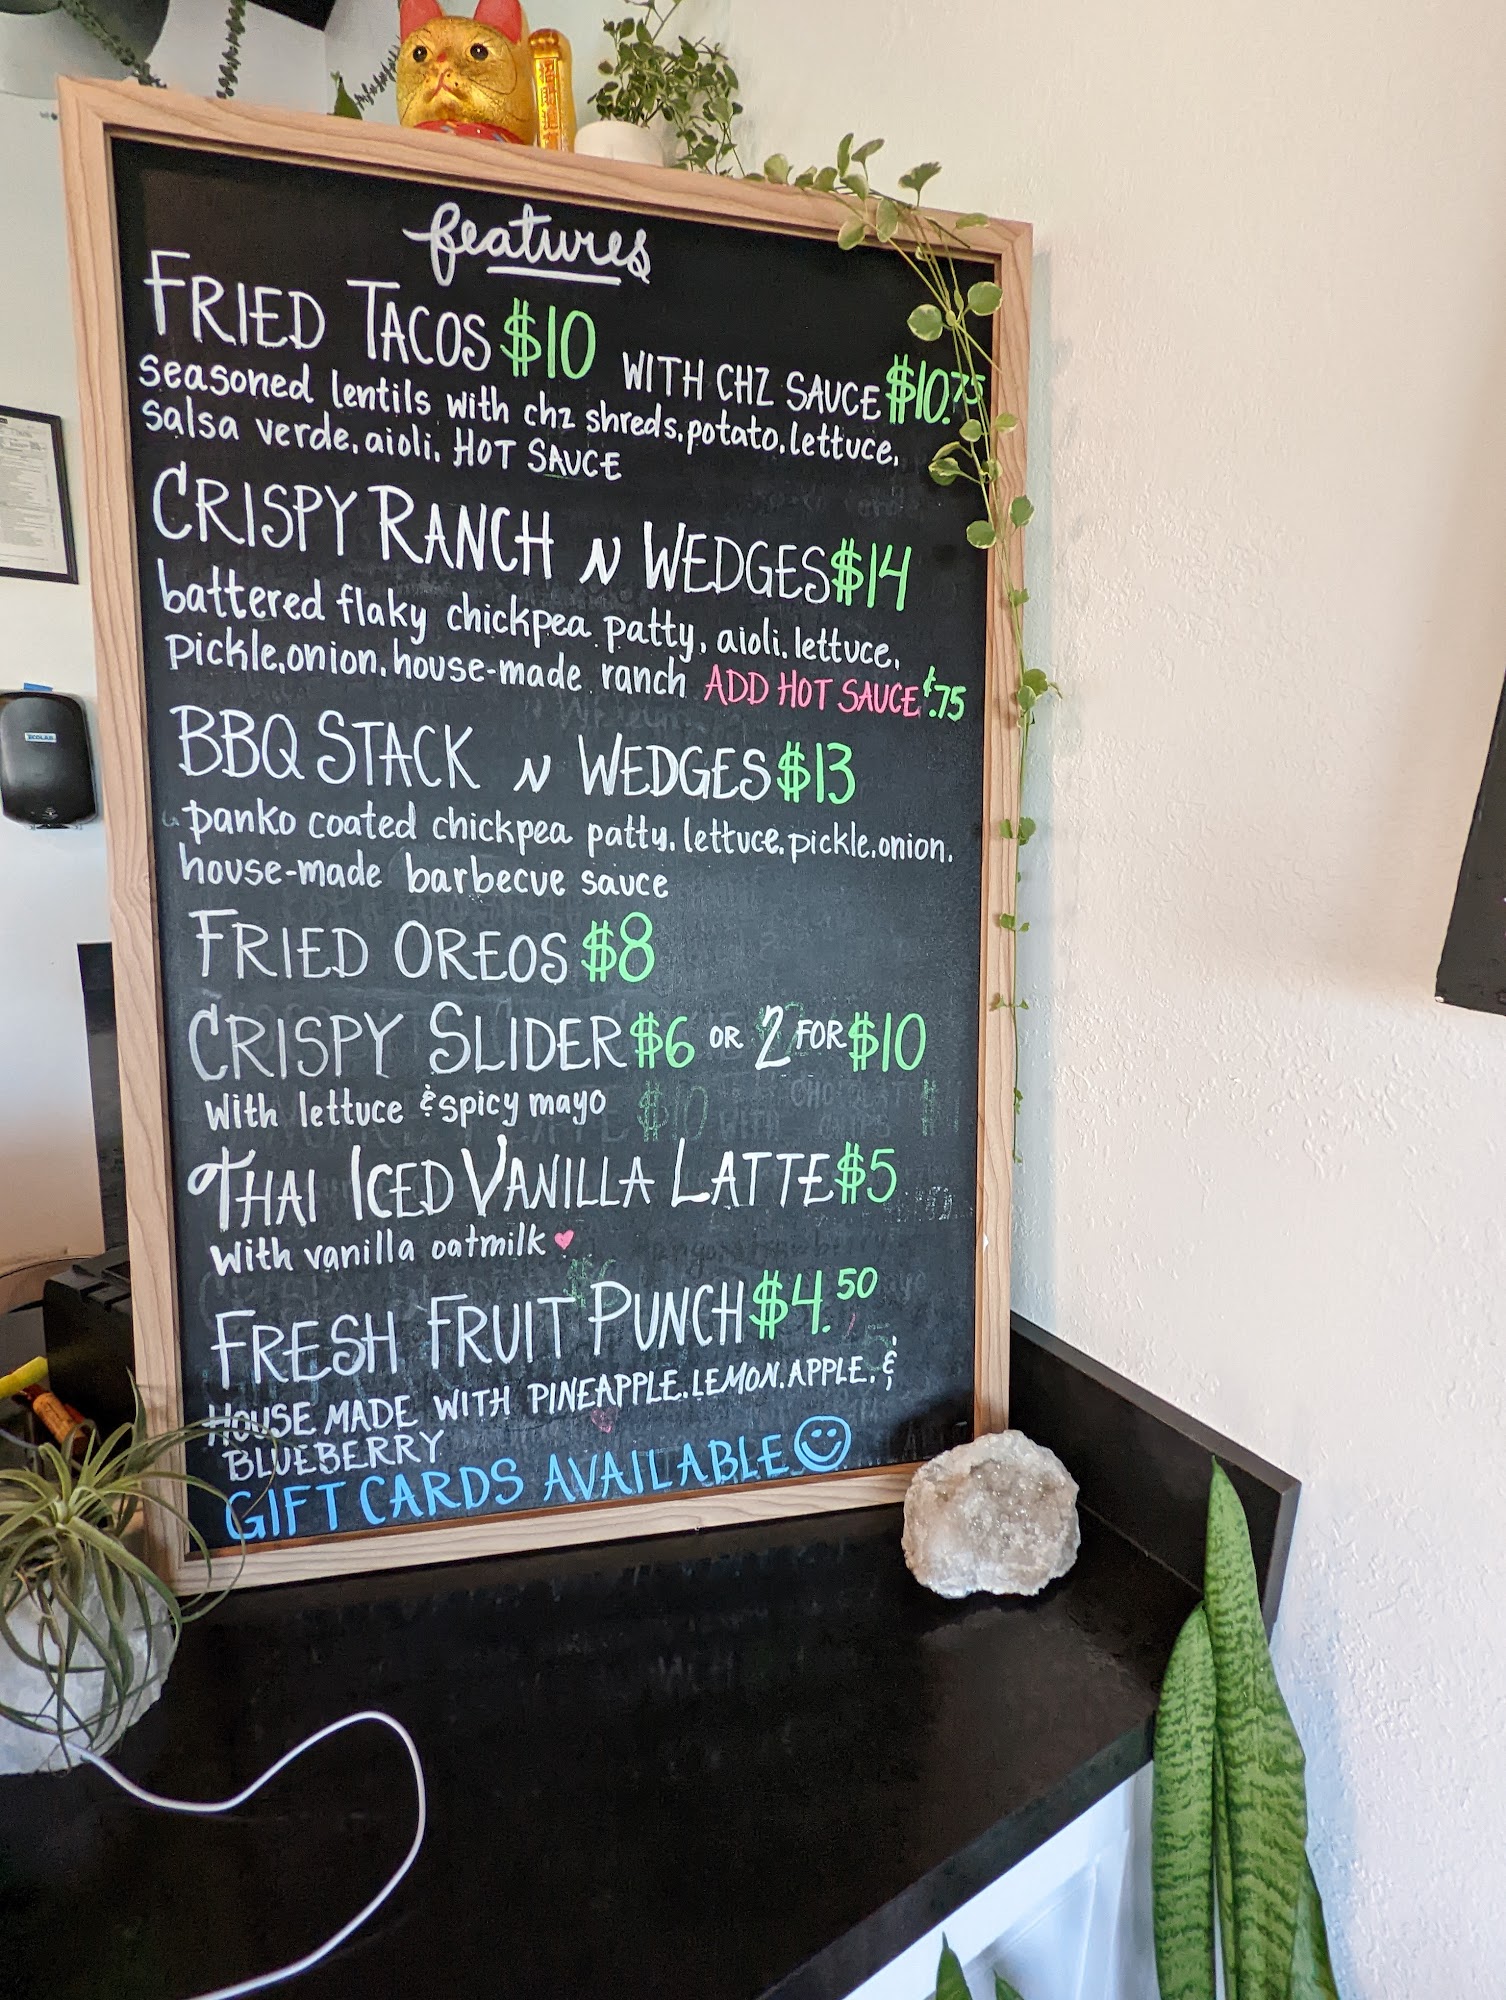 features
FRIED TACOS $10 WITH CHZ SAUCE $10.75
seasoned lentils with chz shreds.potato.lettuce.
salsa verde.aioli. HOT SAUCE
CRISPY RANCH N WEDGES $14
battered flaky chickpea patty, aioli.lettuce.
pickle.onion.house-made ranch ADD HOT SAUCE $.75
BBQ STACK N WEDGES $13
panko coated chickpea patty.lettuce.pickle.onion.
house-made barbecue sauce
FRIED OREOS $8
CRISPY SLIDER $6 OR 2 FOR $10
with lettuce & spicy mayo
THAI ICED VANILLA LATTE $5
with vanilla oatmilk
FRESH FRUIT PUNCH $4.50
HOUSE MADE WITH PINEAPPLE.LEMON.APPLE. &
BLUEBERRY
GIFT CARDS AVAILABLE
ECOLAB